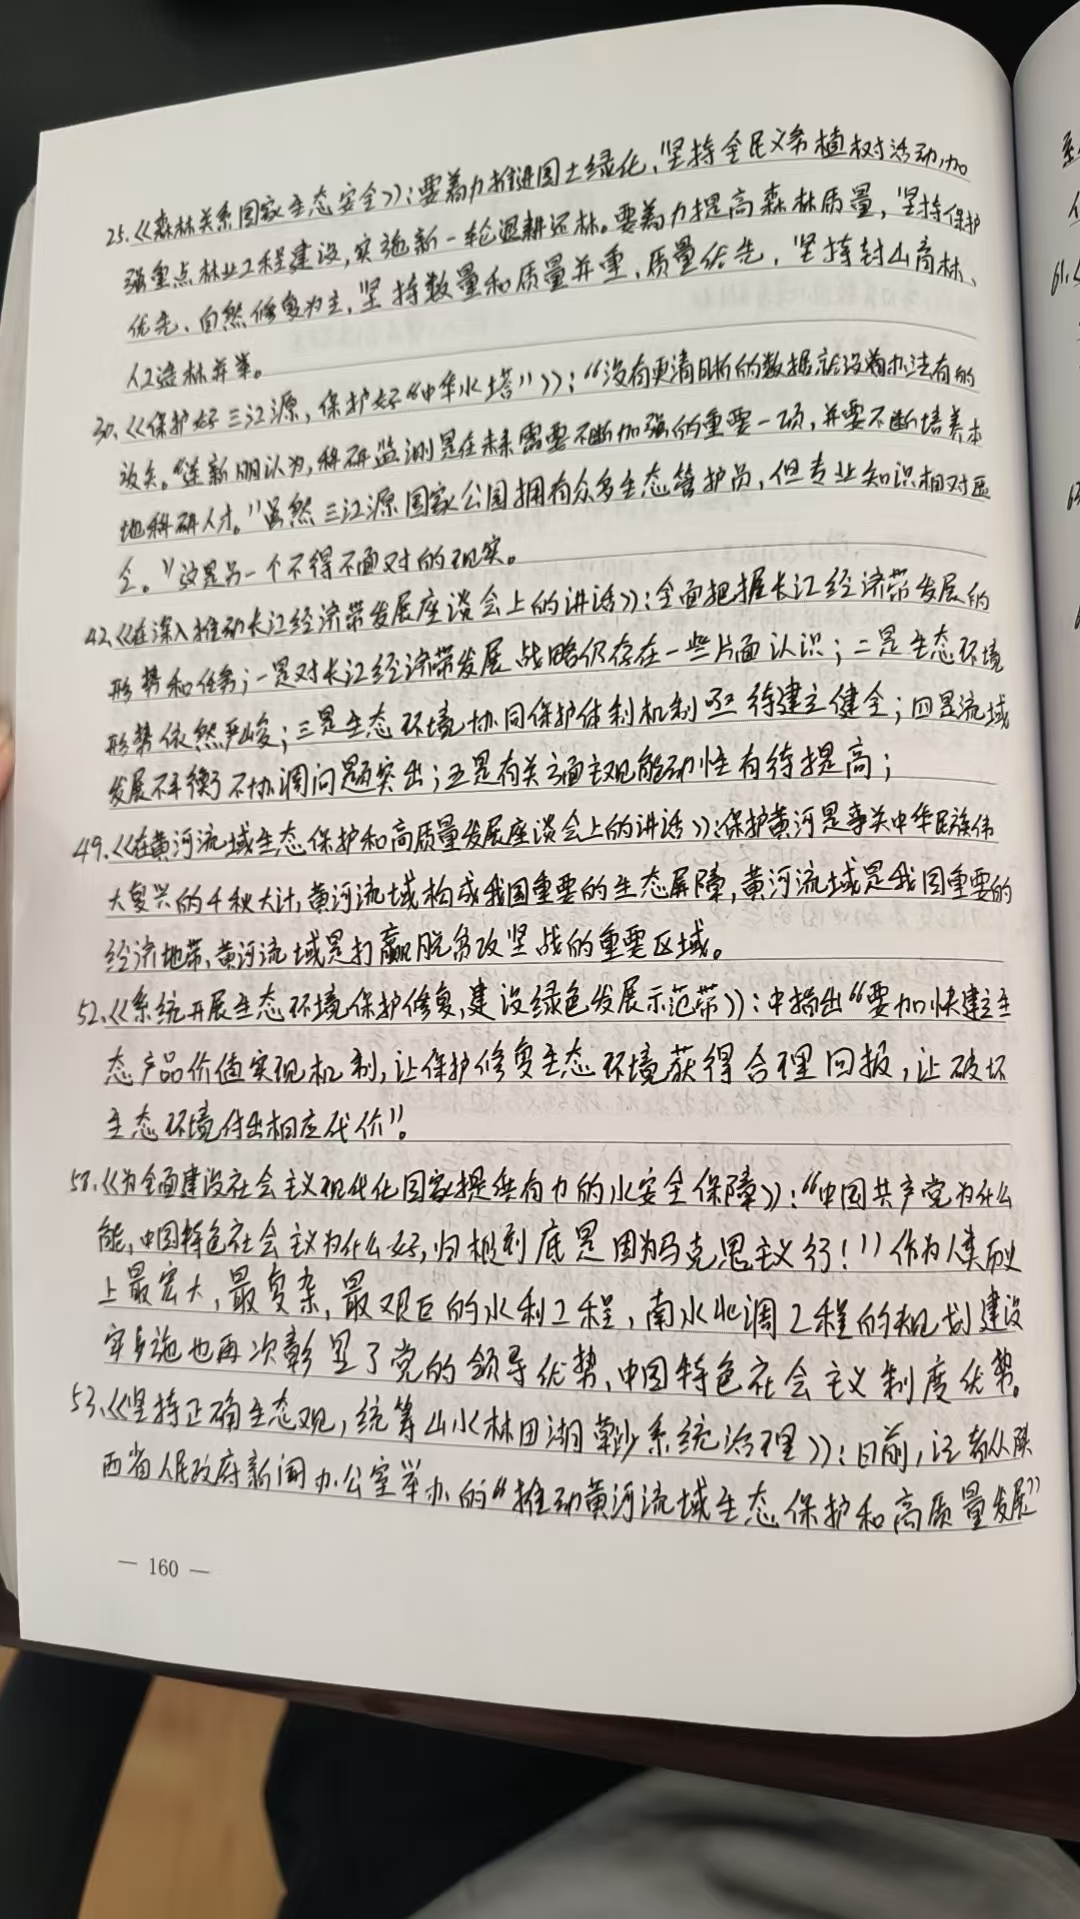 25.《森林关系国家生态安全》：要着力推进国土绿化，坚持全民义务植树活动，加
强重点林业工程建设，实施新一轮退耕还林。要着力提高森林质量，坚持保护
优先、自然修复为主，坚持数量和质量并重、质量优先，坚持封山育林、
人工造林并举。
30、《保护好三江源，保护好“中华水塔”》：“没有更清晰的数据就没有办法有的
放矢。”连新明认为，科研监测是在未来需要不断加强的重要一项，并要不断培养本
地科研人才。“虽然三江源国家公园拥有众多生态管护员，但专业知识相对匮
乏。”这是另一个不得不面对的现实。
42、《在深入推动长江经济带发展座谈会上的讲话》：全面把握长江经济带发展的
形势和任务；一是对长江经济带发展战略仍存在一些片面认识；二是生态环境
形势依然严峻；三是生态环境协同保护体制机制亟待建立健全；四是流域
发展不平衡不协调问题突出；五是有关方面主观能动性有待提高；
49.《在黄河流域生态保护和高质量发展座谈会上的讲话》：保护黄河是事关中华民族伟
大复兴的千秋大计，黄河流域构成我国重要的生态屏障，黄河流域是我国重要的
经济地带，黄河流域是打赢脱贫攻坚战的重要区域。
52.《系统开展生态环境保护修复，建设绿色发展示范带》：中指出“要加快建立生
态产品价值实现机制，让保护修复生态环境获得合理回报，让破坏
生态环境付出相应代价”。
58.《为全面建设社会主义现代化国家提供有力的水安全保障》：“中国共产党为什么
能，中国特色社会主义为什么好，归根到底是因为马克思主义行！”作为人类历史
上最宏大，最复杂，最艰巨的水利工程，南水北调工程的规划建设
实施也再次彰显了党的领导优势，中国特色社会主义制度优势。
53.《坚持正确生态观，统筹山水林田湖草沙系统治理》：日前，记者从陕
西省人民政府新闻办公室举办的“推动黄河流域生态保护和高质量发展”
— 160 —